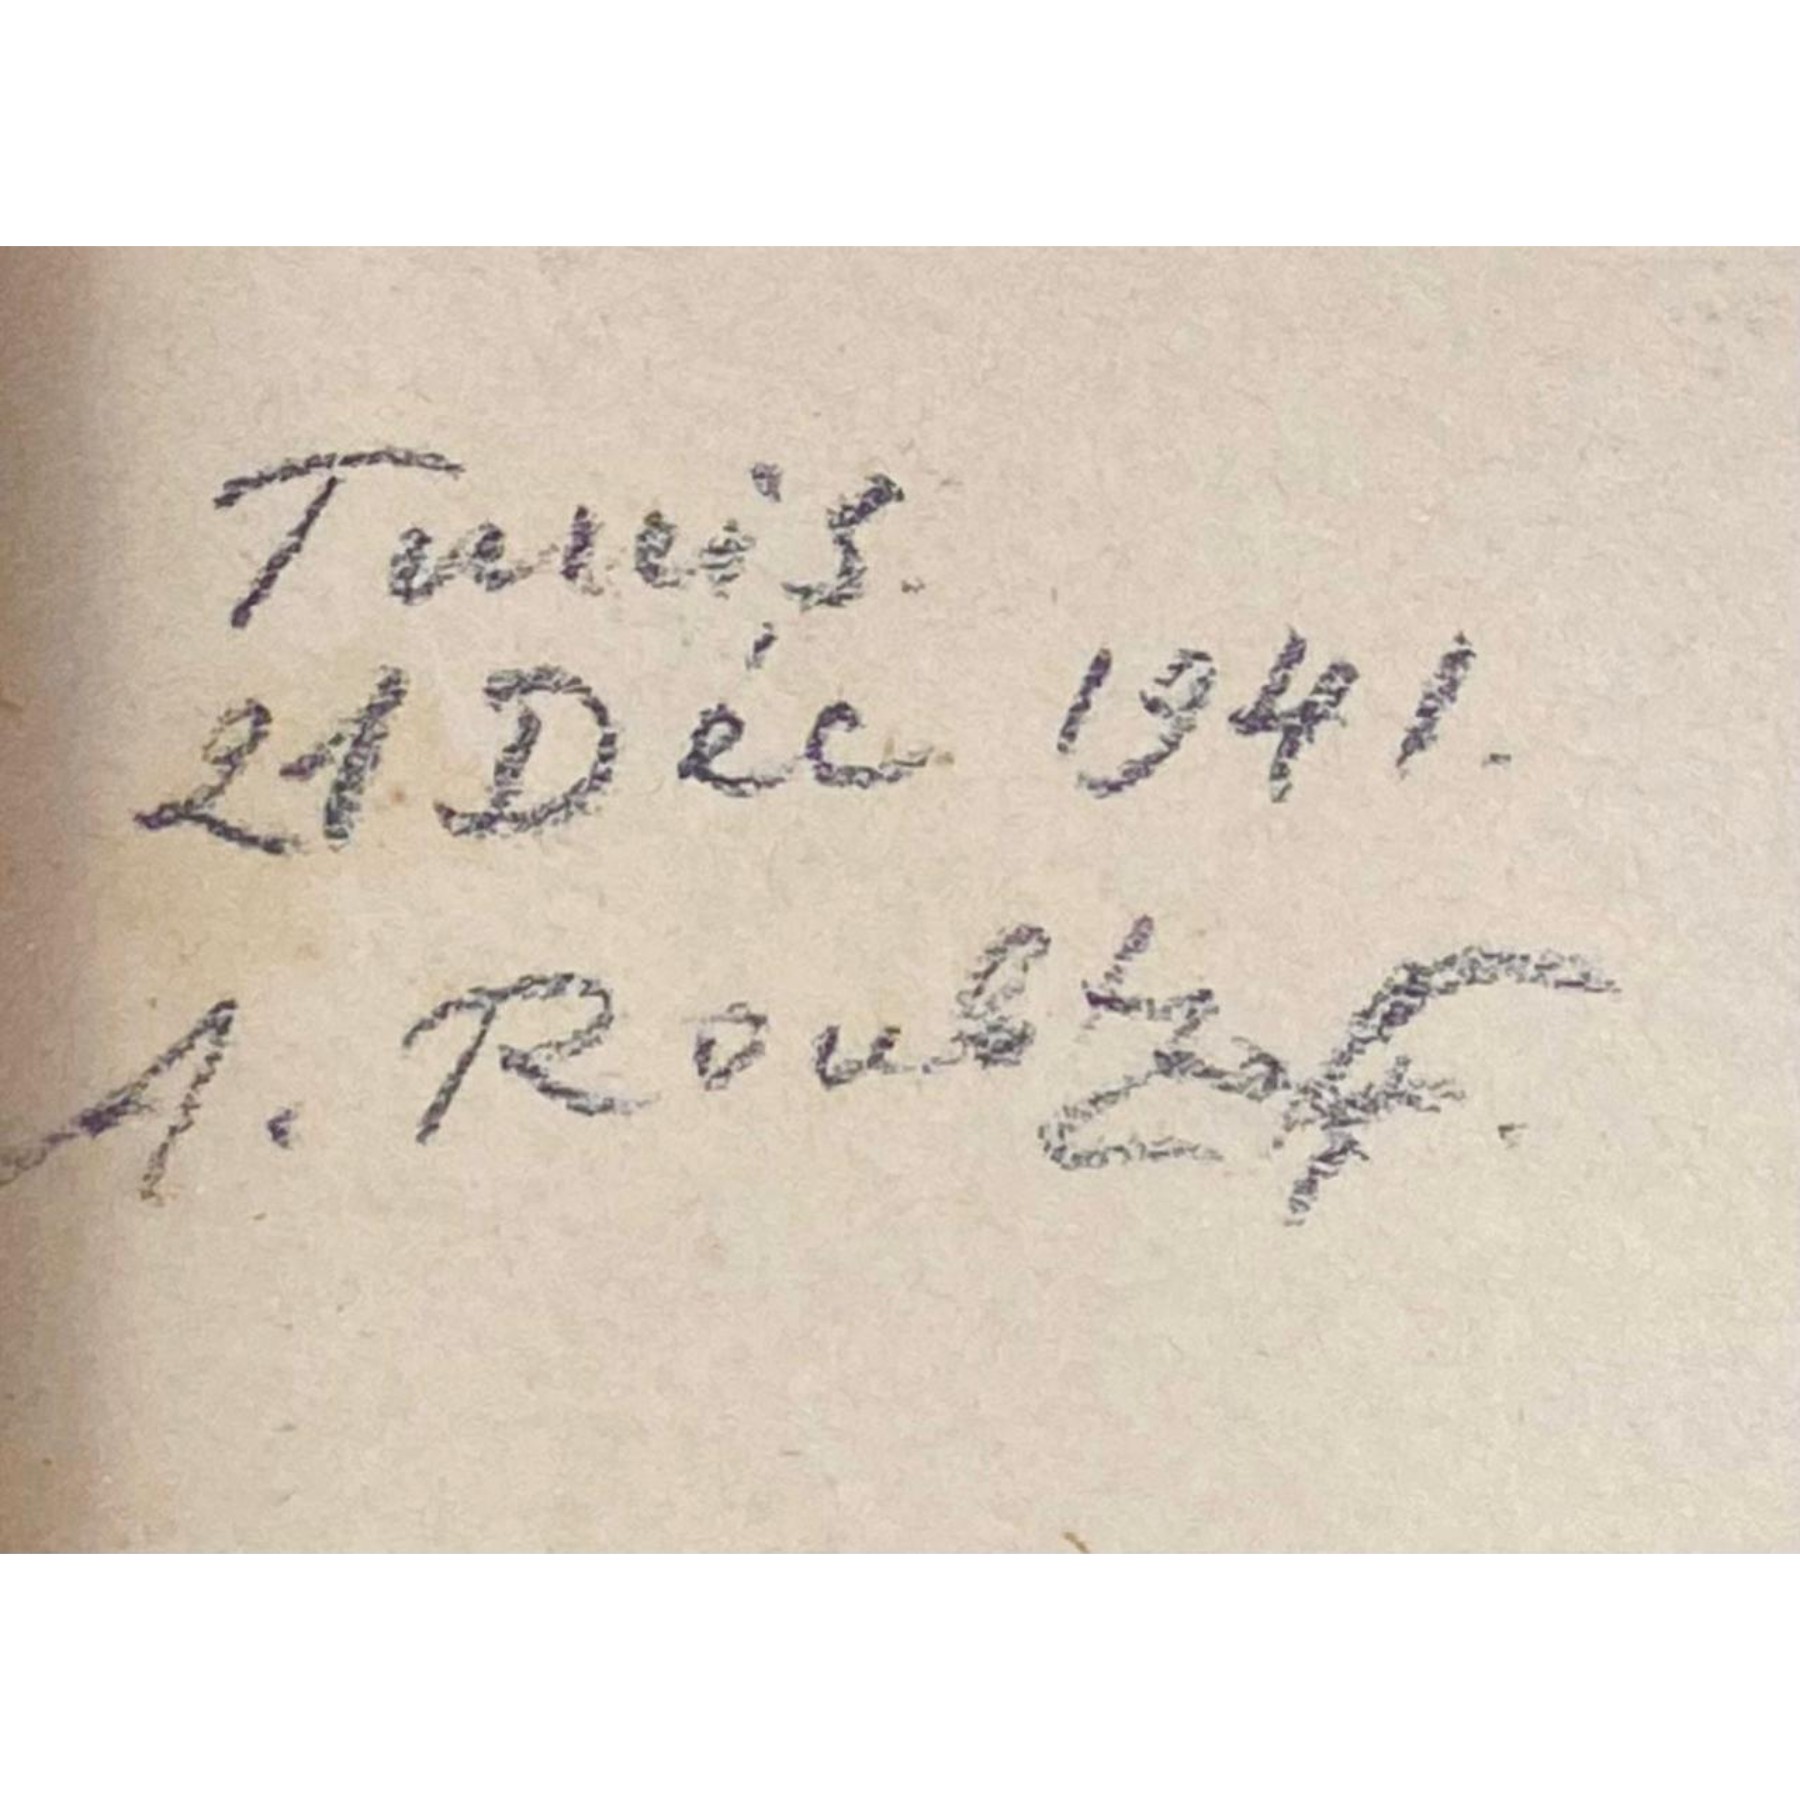 Tunis.
21 Déc 1941.
A. Roubtzoff.